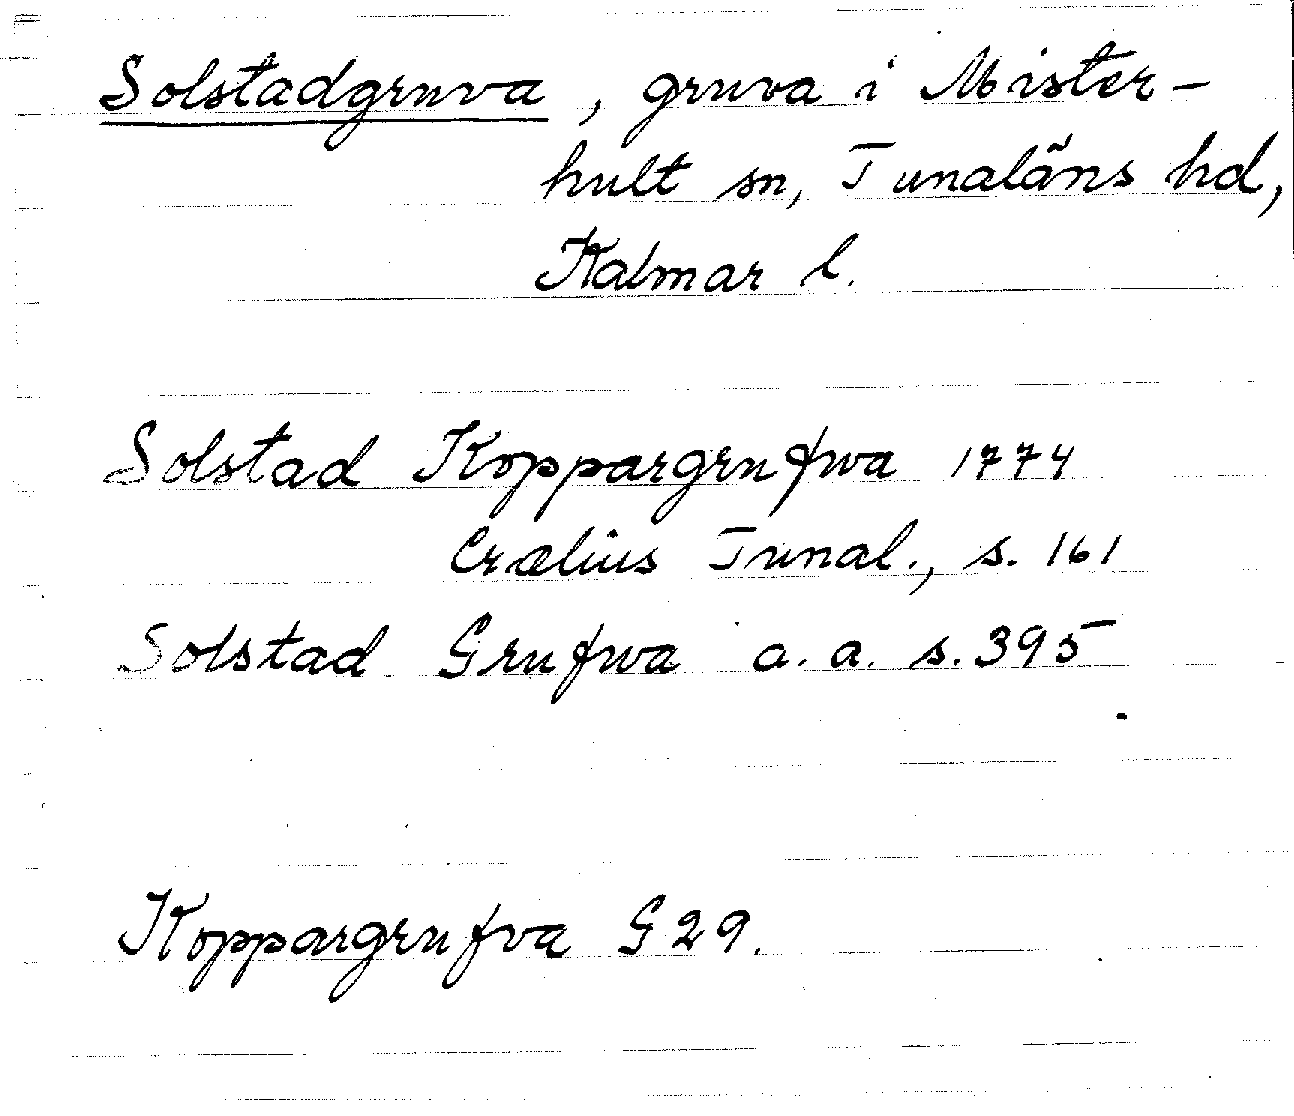 Solstadgruva, gruva i Mister-
hult sn, Tunaläns hd,
Kalmar l.
Solstad Koppargrufwa 1774
Crælius Tunal., s. 161
Solstad Grufwa a. a. s. 395
Koppargrufva G29.